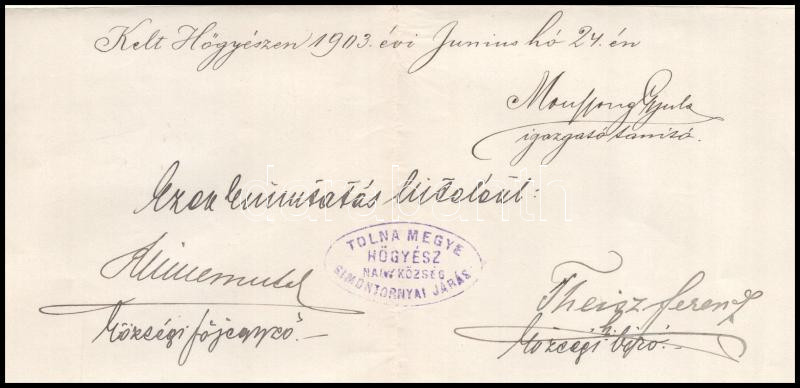 Kelt Högyészen 1903. évi Junius hó 24. én
Gyula
igazgató tanító.
Ezen kimutatás hiteléül:
TOLNA MEGYE
HÖGYÉSZ
NAGY KÖZSÉG
SIMONTORNYAI JÁRÁS
Községi főjegyző.—
Theisz Ferencz
Községi biró.—